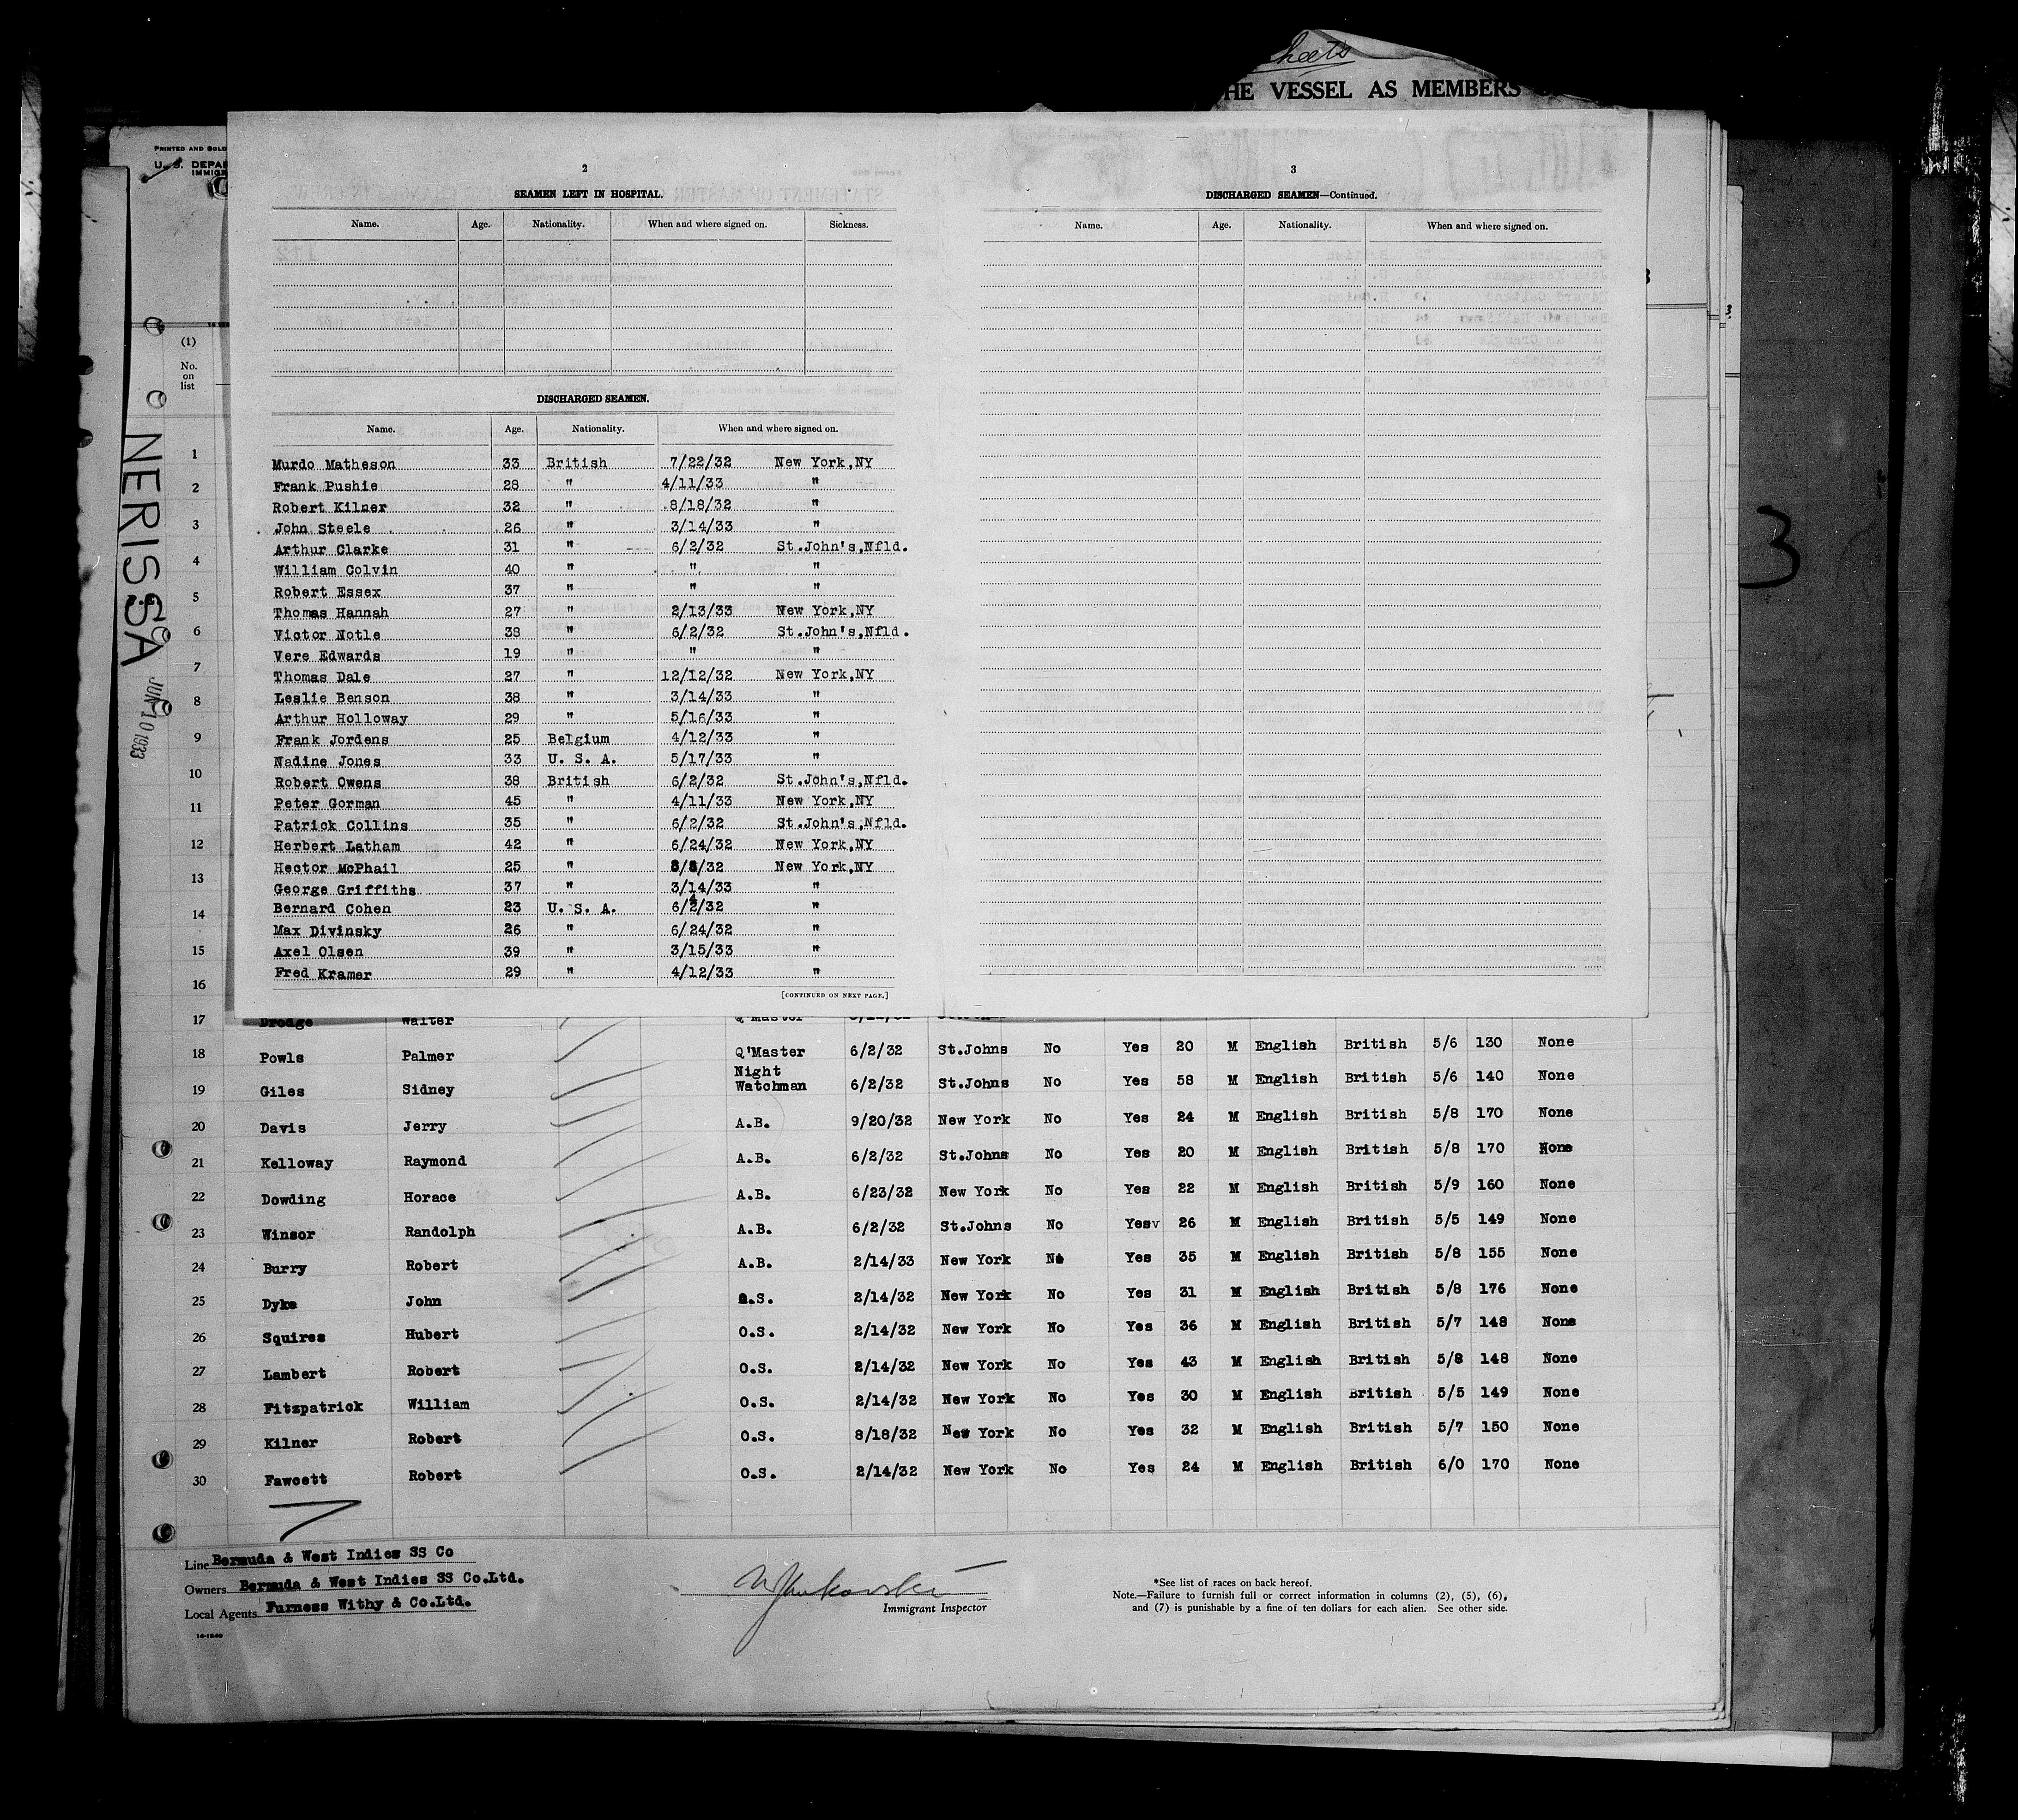 sheets
HE VESSEL AS MEMBERS
PRINTED AND SOLD
U. S. DEPAR
IMMIGR
NERISSA
JUN 10 1933
3
(1)
No.
on
list
2
SEAMEN LEFT IN HOSPITAL.
Name. Age. Nationality. When and where signed on. Sickness.
DISCHARGED SEAMEN.
Name. Age. Nationality. When and where signed on.
Murdo Matheson 33 British 7/22/32 New York,NY
Frank Pushie 28 " 4/11/33 "
Robert Kilner 32 " 8/18/32 "
John Steele 26 " 3/14/33 "
Arthur Clarke 31 " 6/2/32 St.John's,Nfld.
William Colvin 40 " " "
Robert Essex 37 " " "
Thomas Hannah 27 " 2/13/33 New York,NY
Victor Notle 38 " 6/2/32 St.John's,Nfld.
Vere Edwards 19 " " "
Thomas Dale 27 " 12/12/32 New York,NY
Leslie Benson 38 " 3/14/33 "
Arthur Holloway 29 " 5/16/33 "
Frank Jordens 25 Belgium 4/12/33 "
Nadine Jones 33 U. S. A. 5/17/33 "
Robert Owens 38 British 6/2/32 St.John's,Nfld.
Peter Gorman 45 " 4/11/33 New York,NY
Patrick Collins 35 " 6/2/32 St.John's,Nfld.
Herbert Latham 42 " 6/24/32 New York,NY
Hector McPhail 25 " 8/8/32 New York,NY
George Griffiths 37 " 3/14/33 "
Bernard Cohen 23 U. S. A. 6/24/32 "
Max Divinsky 26 " 6/24/32 "
Axel Olsen 39 " 3/15/33 "
Fred Kramer 29 " 4/12/33 "
[CONTINUED ON NEXT PAGE.]
3
DISCHARGED SEAMEN—Continued.
Name. Age. Nationality. When and where signed on.
1
2
3
4
5
6
7
8
9
10
11
12
13
14
15
16
17 Drodge Walter Q'Master
18 Powls Palmer Q'Master 6/2/32 St.Johns No Yes 20 M English British 5/6 130 None
19 Giles Sidney Night Watchman 6/2/32 St.Johns No Yes 58 M English British 5/6 140 None
20 Davis Jerry A.B. 9/20/32 New York No Yes 24 M English British 5/8 170 None
21 Kelloway Raymond A.B. 6/2/32 St.Johns No Yes 20 M English British 5/8 170 None
22 Dowding Horace A.B. 6/23/32 New York No Yes 22 M English British 5/9 160 None
23 Winsor Randolph A.B. 6/2/32 St.Johns No Yesv 26 M English British 5/5 149 None
24 Burry Robert A.B. 2/14/33 New York No Yes 35 M English British 5/8 155 None
25 Dyke John O.S. 2/14/32 New York No Yes 31 M English British 5/8 176 None
26 Squires Hubert O.S. 2/14/32 New York No Yes 36 M English British 5/7 148 None
27 Lambert Robert O.S. 2/14/32 New York No Yes 43 M English British 5/8 148 None
28 Fitzpatrick William O.S. 2/14/32 New York No Yes 30 M English British 5/5 149 None
29 Kilner Robert O.S. 8/18/32 New York No Yes 32 M English British 5/7 150 None
30 Fawcett Robert O.S. 2/14/32 New York No Yes 24 M English British 6/0 170 None
Line Bermuda & West Indies SS Co
Owners Bermuda & West Indies SS Co.Ltd.
Local Agents Furness Withy & Co.Ltd.
14-1240
Immigrant Inspector
*See list of races on back hereof.
Note.—Failure to furnish full or correct information in columns (2), (5), (6),
and (7) is punishable by a fine of ten dollars for each alien. See other side.